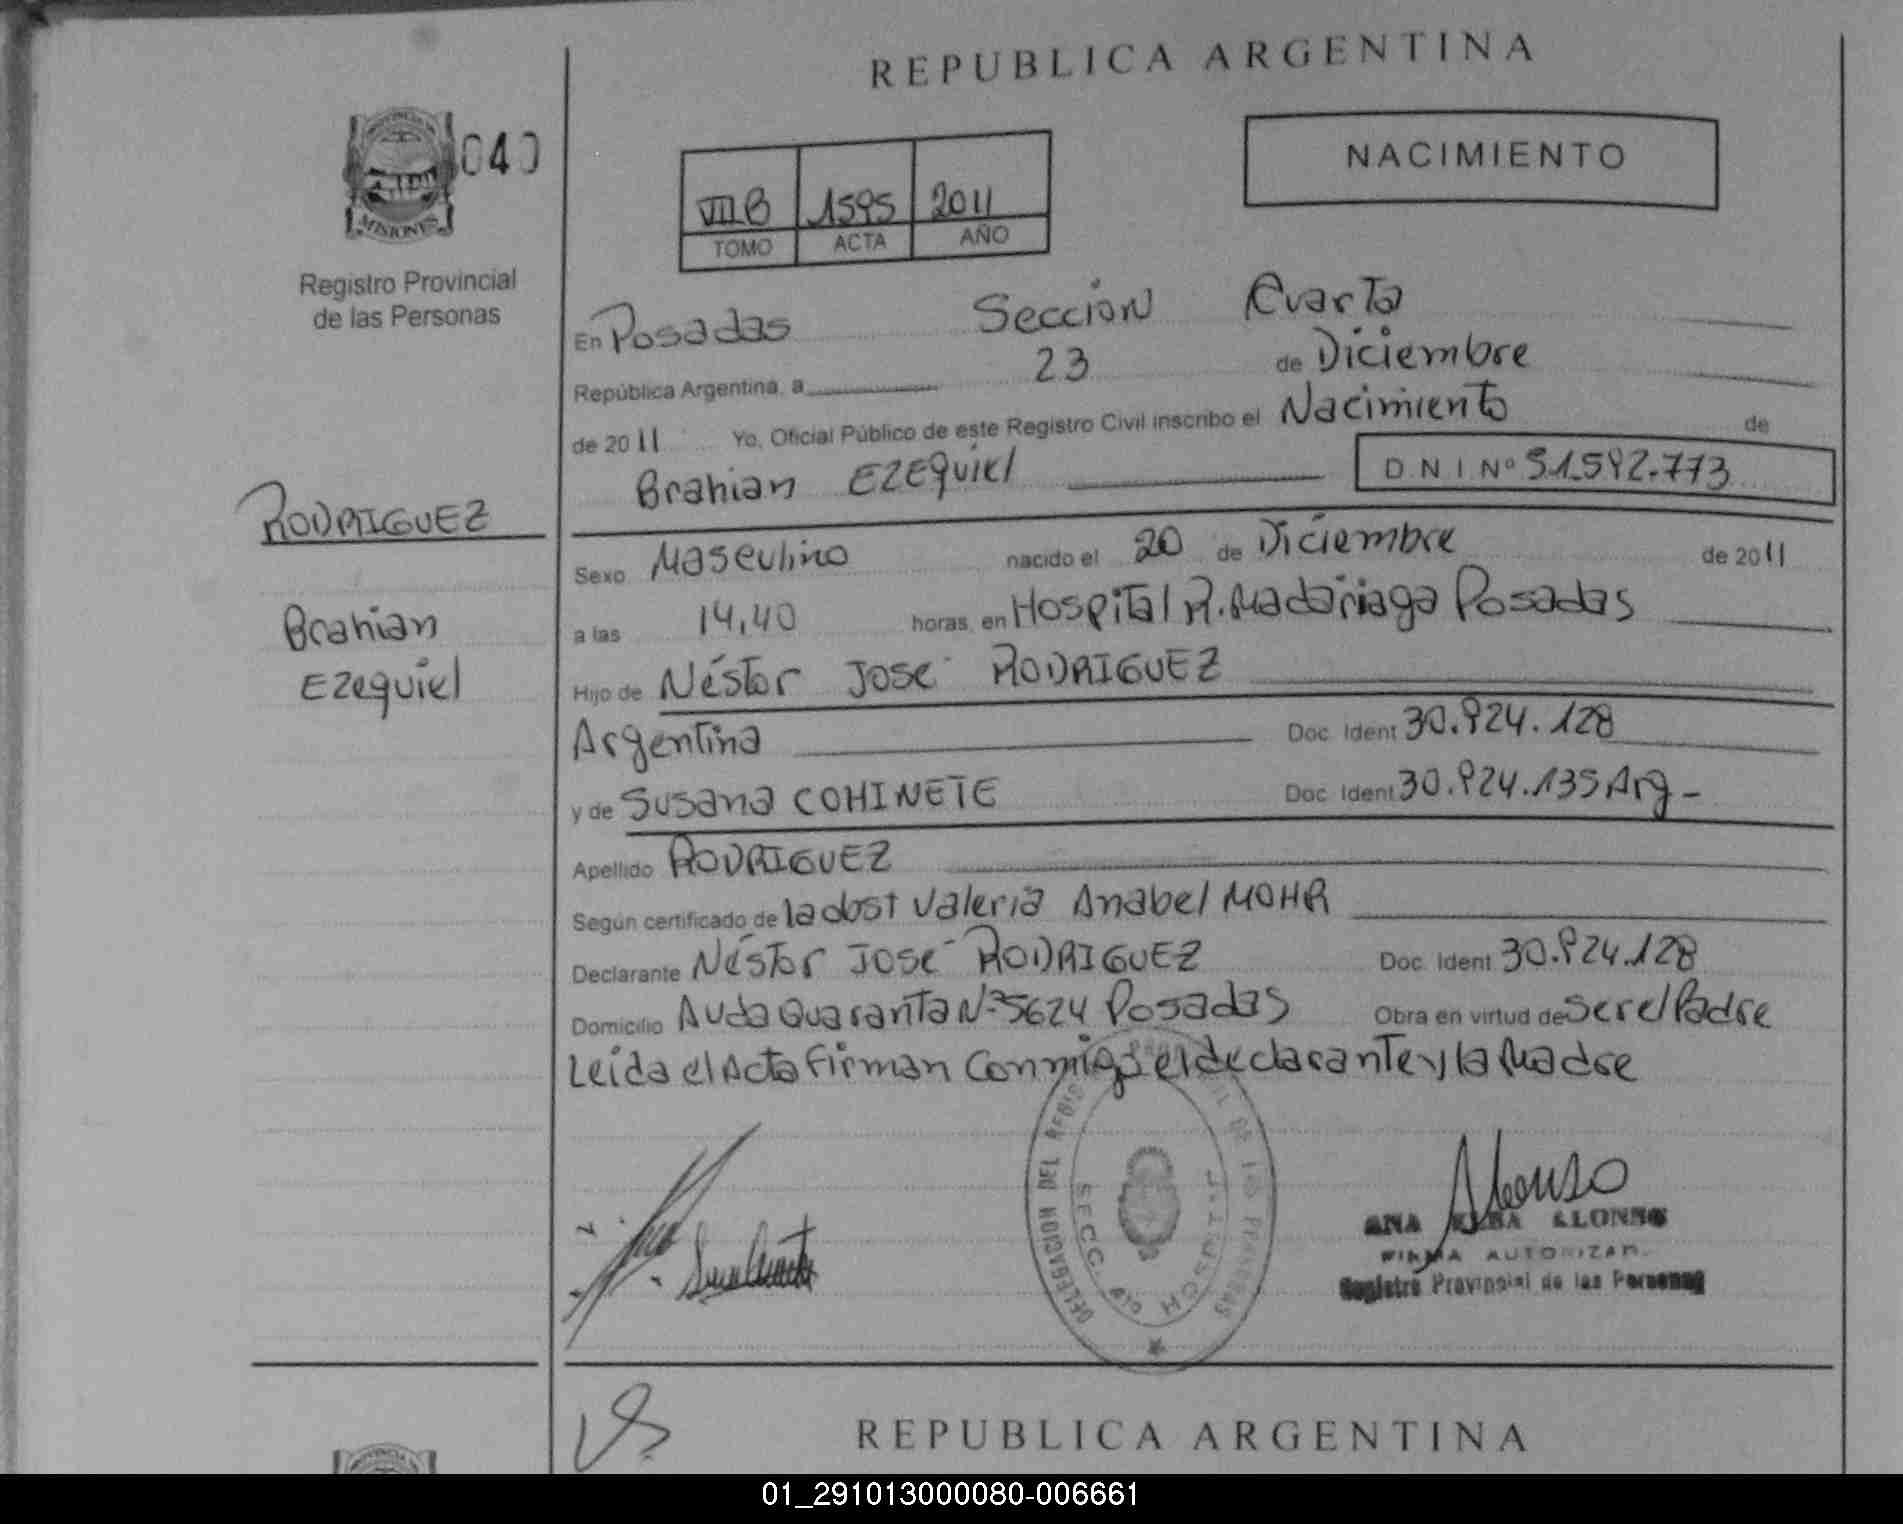 REPUBLICA ARGENTINA
040
NACIMIENTO
MISIONES
VIII B 1595 2011
TOMO ACTA AÑO
Registro Provincial
de las Personas
En Posadas Sección Cuarta
República Argentina, a 23 de Diciembre
de 2011 Yo, Oficial Público de este Registro Civil inscribo el Nacimiento de
Brahian EZEQuiel D.N.I Nº 51.592.773
RODRIGUEZ
Brahian
Ezequiel
Sexo Masculino nacido el 20 de Diciembre de 2011
a las 14,40 horas, en Hospital R. Madariaga Posadas
Hijo de Néstor José RODRIGUEZ
Argentina Doc. Ident 30.924.128
y de Susana COHINETE Doc. Ident 30.924.135 Arg -
Apellido RODRIGUEZ
Según certificado de la obst Valeria Anabel MOHR
Declarante Néstor José RODRIGUEZ Doc. Ident 30.924.128
Domicilio Avda Quaranta Nº 5624 Posadas Obra en virtud de Ser el Padre
Leida el Acta Firman Conmigo el declarante y la Madre
DELEGACION DEL REGIS
SECC. 4ta
ANA ELBA ALONSO
FIRMA AUTORIZAD.
Registro Provincial de las Personas
REPUBLICA ARGENTINA
01_291013000080-006661